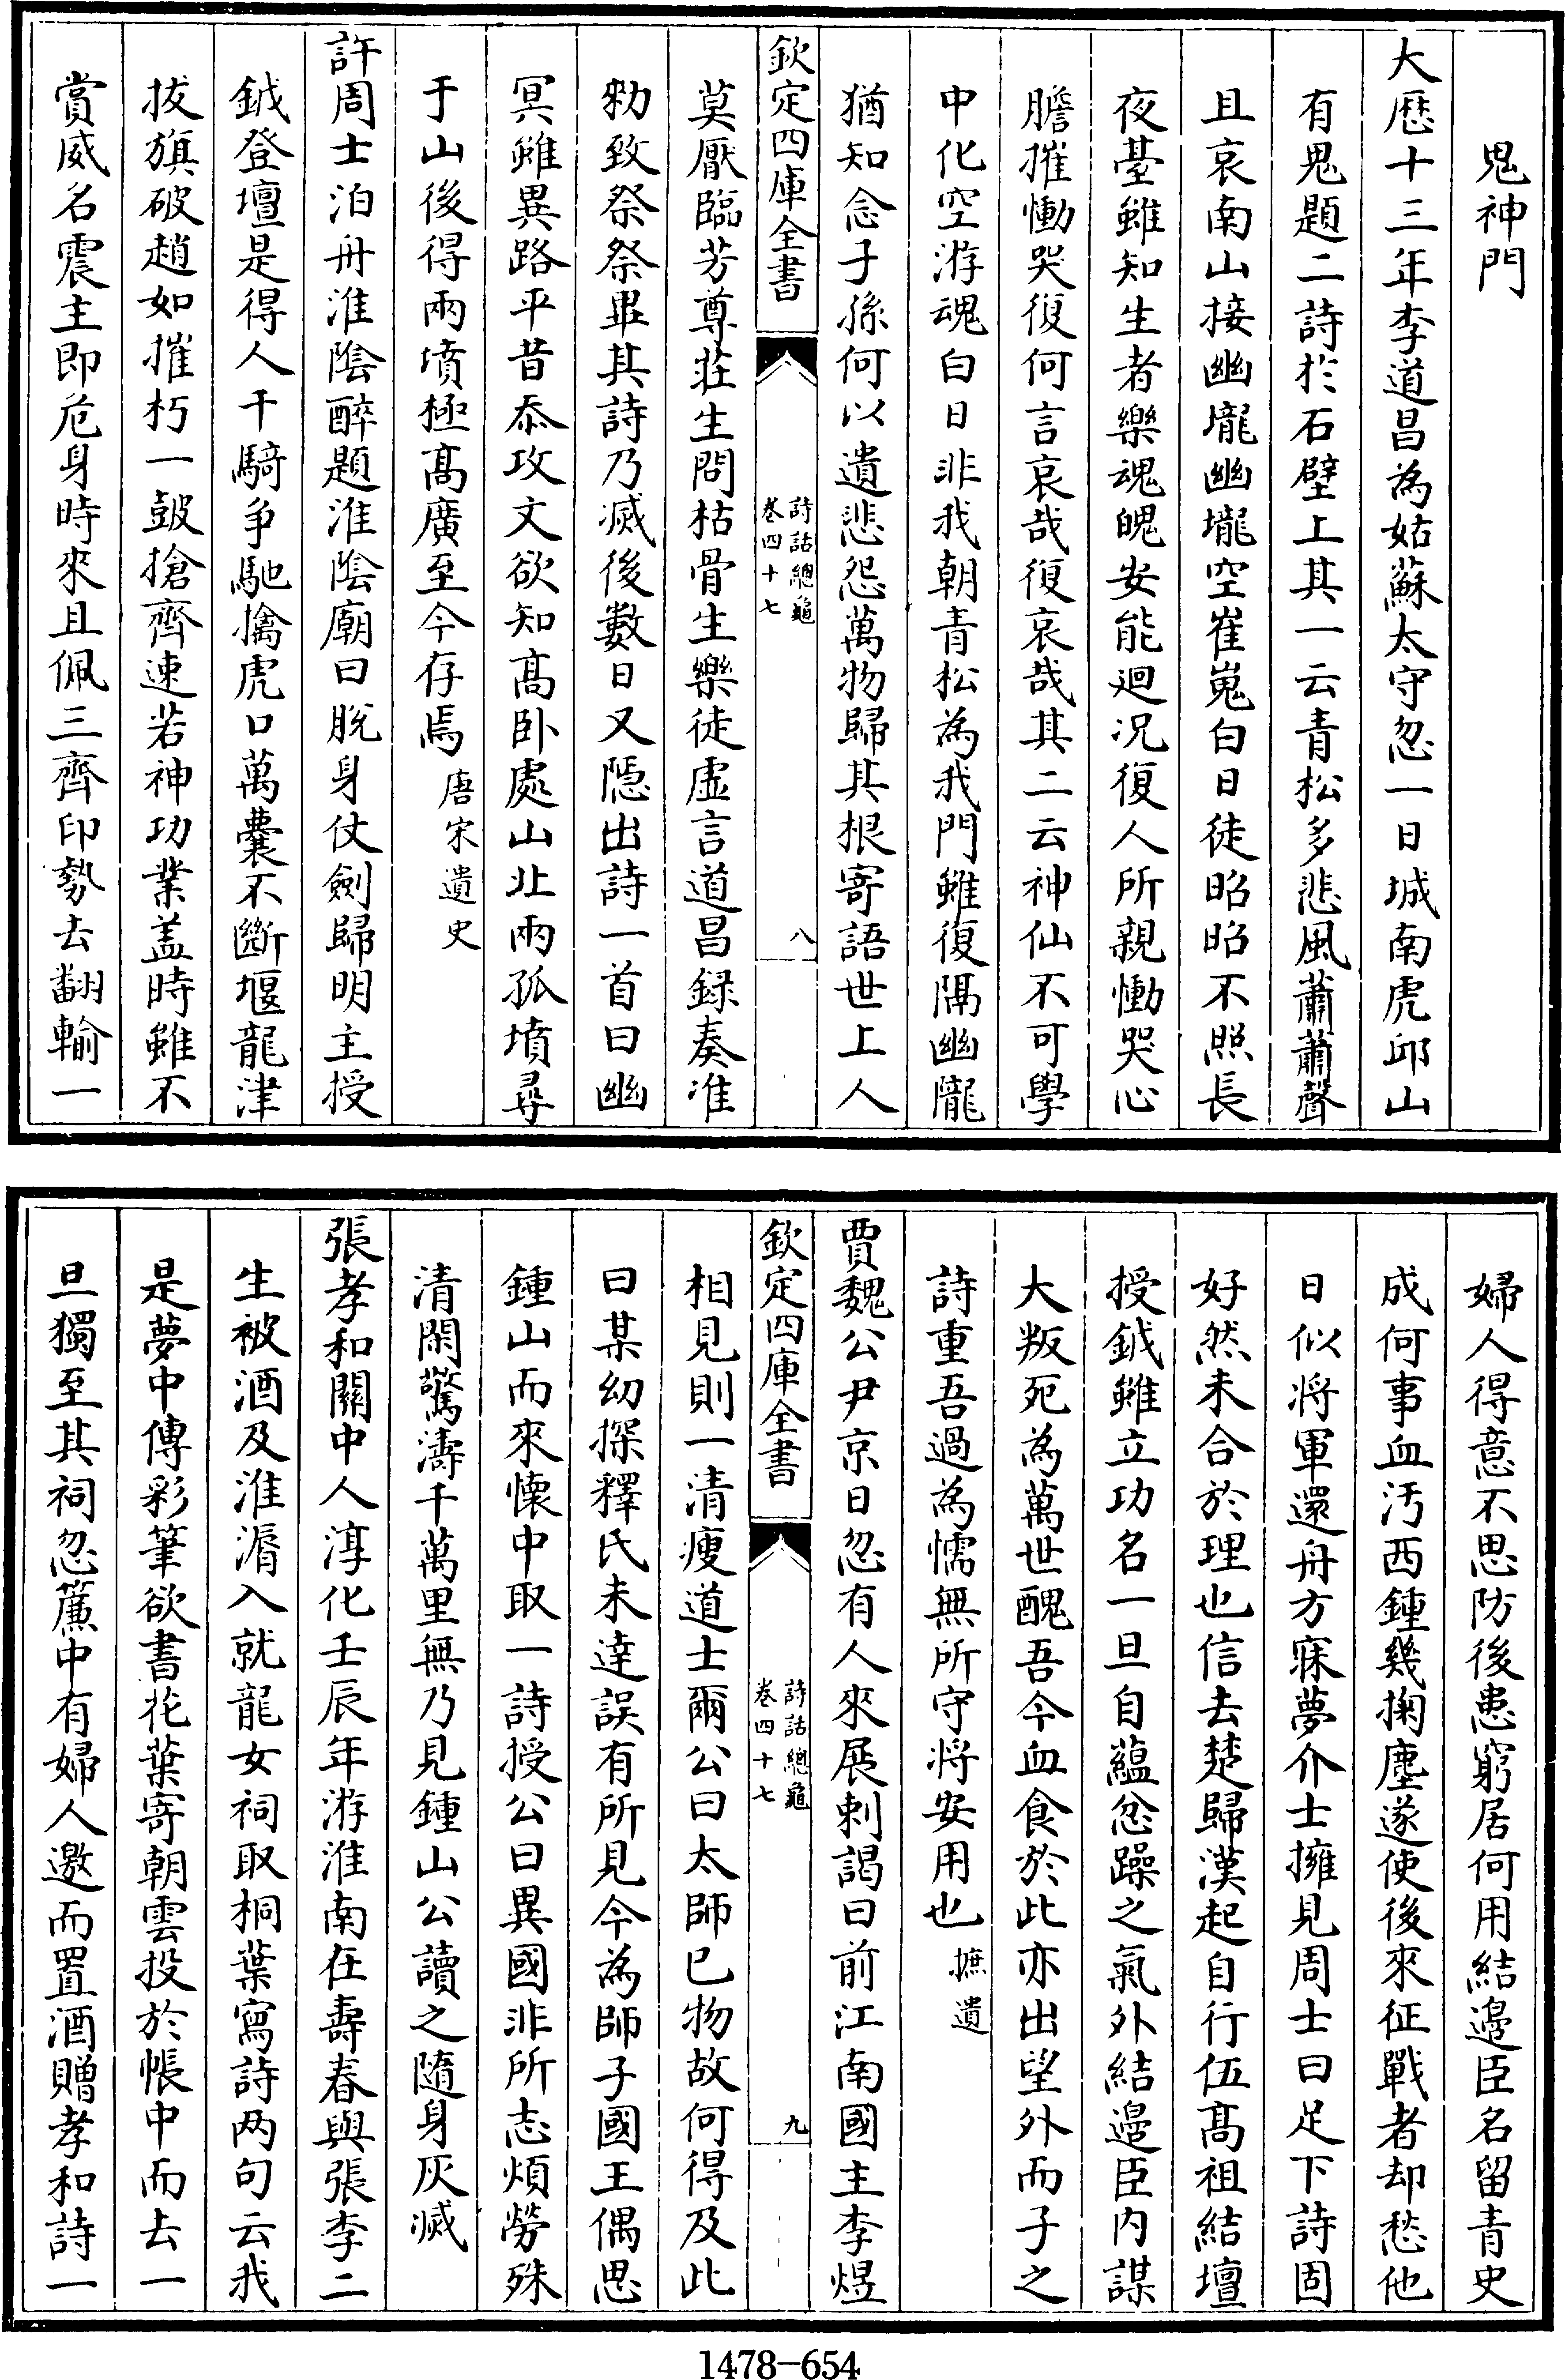 鬼神門
大厯十三年李道昌為姑蘇太守忽一日城南虎邱山
有鬼題二詩於石壁上其一云青松多悲風蕭蕭聲
且哀南山接幽壠幽壠空崔嵬白日徒昭昭不照長
夜臺雖知生者樂魂魄安能迴况復人所親慟哭心
膽摧慟哭復何言哀哉復哀哉其二云神仙不可學
中化空游魂白日非我朝青松為我門雖復隔幽隴
猶知念子孫何以遺悲怨萬物歸其根寄語世上人
欽定四庫全書
詩話總龜
卷四十七
八
莫厭臨芳尊莊生問枯骨生樂徒虛言道昌録奏准
勑致祭祭畢其詩乃滅後數日又隠出詩一首曰幽
冥雖異路平昔忝攻文欲知髙卧處山北兩孤墳尋
于山後得兩墳極髙廣至今存焉唐宋遺史
許周士泊舟淮隂醉題淮隂廟曰脱身仗劍歸明主授
鉞登壇是得人千騎爭馳擒虎口萬囊不斷堰龍津
拔旗破趙如摧朽一鼓搶齊速若神功業盖時雖不
賞威名震主即危身時來且佩三齊印勢去翻輸一
婦人得意不思防後患窮居何用結邉臣名留青史
成何事血汚西鍾幾掬塵遂使後來征戰者却愁他
日似將軍還舟方寐夢介士擁見周士曰足下詩固
好然未合於理也信去楚歸漢起自行伍髙祖結壇
授鉞雖立功名一旦自藴忿躁之氣外結邉臣内謀
大叛死為萬世醜吾今血食於此亦出望外而子之
詩重吾過為懦無所守將安用也摭遺
賈魏公尹京日忽有人來展刺謁曰前江南國主李煜
欽定四庫全書
詩話總龜
卷四十七
九
相見則一清瘦道士爾公曰太師已物故何得及此
曰某幼探釋氏未達誤有所見今為師子國王偶思
鍾山而來懐中取一詩授公曰異國非所志煩勞殊
清閑驚濤千萬里無乃見鍾山公讀之隨身灰滅
張孝和關中人淳化壬辰年游淮南在壽春與張李二
生被酒及淮湄入就龍女祠取桐葉寫詩两句云我
是夢中傳彩筆欲書花葉寄朝雲投於帳中而去一
旦獨至其祠忽簾中有婦人邀而置酒贈孝和詩一
1478-654